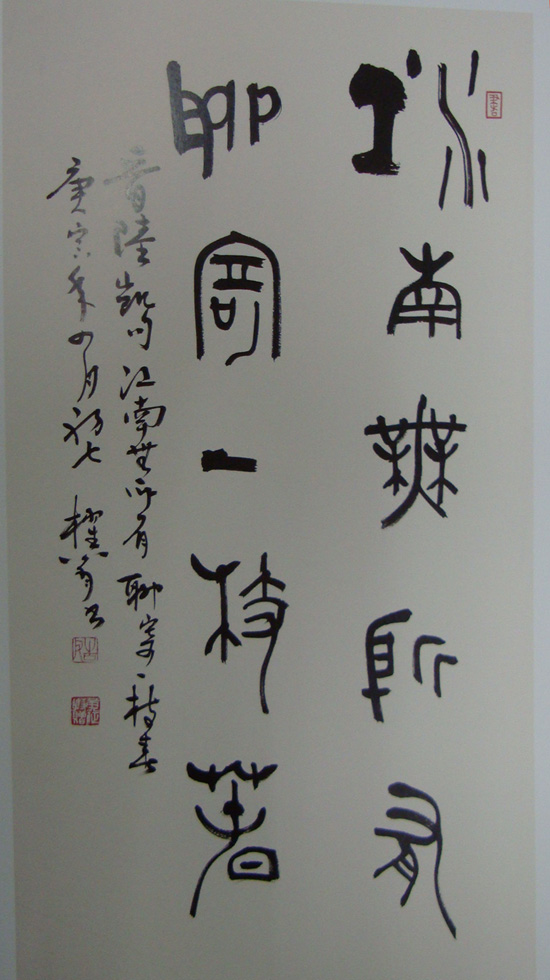 江南無所有
聊寄一枝春
晉陸凱句 江南無所有 聊寄一枝春
庚寅年四月初七 書